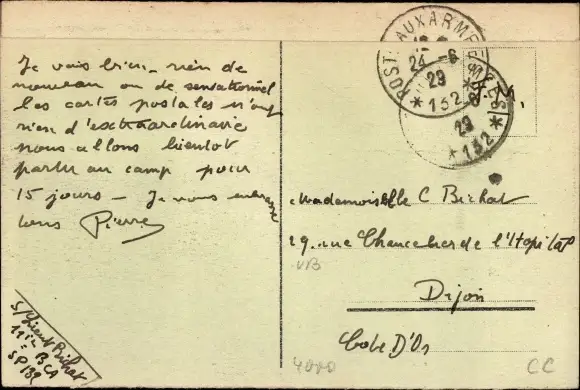 Je vais bien - rien de
nouveau ou de sensationnel
les cartes postales n'ont
rien d'extraordinaire
nous allons bientôt
partir au camp pour
15 jours - Je vous embrasse
tous Pierre
S/Lieut Bichat
11ie B C A
SP 132
POSTES AUX ARMEES
24 - 6
29
* 132 *
29
* 132 *
F. M.
Mademoiselle C Bichat
29. rue Chancelier de l'Hopital
VB
Dijon
Cote D'Or
4000
CC